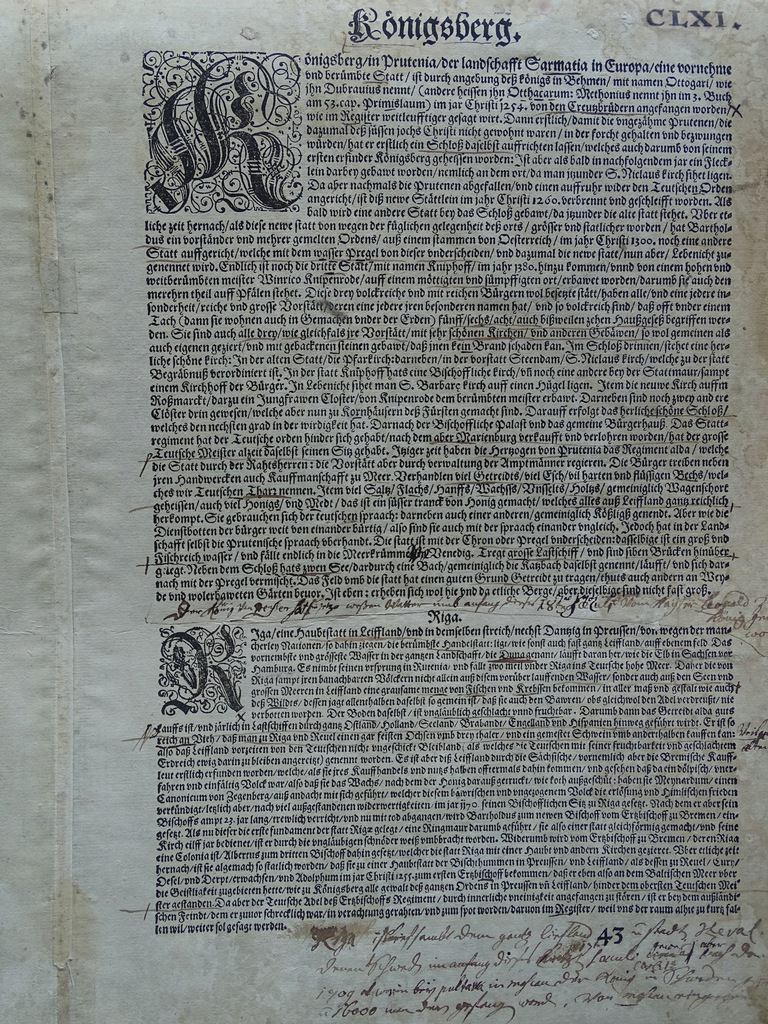 Königsberg.
CLXI.
Königsberg/in Prutenia/der landschafft Sarmatia in Europa/eine vornehme
vnd berümbte Statt/ist durch angebung deß königs in Behmen/mit namen Ottogari/wie
ihn Dubrauius nennt/(andere heissen ihn Otthacarum: Methonius nennt ihn im 3. Buch
am 53.cap. Primislaum) im jar Christi 1254. von den Creutzbrüdern angefangen worden/
wie im Register weitleufftiger gesagt wirt. Dann erstlich/damit die vngezähme Prutenen/die
dazumal deß süssen jochs Christi nicht gewohnt waren/in der forcht gehalten vnd bezwungen
würden/hat er erstlich ein Schloß daselbst auffrichten lassen/welches auch darumb von seinem
ersten erfinder Königsberg geheissen worden: Ist aber als bald in nachfolgendem jar ein Fleck-
lein darbey gebawt worden/nemlich an dem ort/da man jtzunder S. Niclaus kirch sihet ligen.
Da aber nachmals die Prutenen abgefallen/vnd einen auffruhr wider den Teutschen Orden
angericht/ist diß newe Stättlein im jar Christi 1260. verbrennt vnd geschleifft worden. Als
bald wird eine andere Statt bey das Schloß gebawt/da jtzunder die alte statt stehet. Vber et-
liche zeit hernach/als diese newe statt von wegen der füglichen gelegenheit deß orts/grösser vnd stattlicher worden/hat Barthol-
dus ein vorständer vnd mehrer gemelten Ordens/auß einem stammen von Oesterreich/im jahr Christi 1300. noch eine andere
Statt auffgericht/welche mit dem wasser Pregel von dieser vnderscheiden/vnd dazumal die newe statt/nun aber/Lebenicht zu-
genennet wird. Endlich ist noch die dritte Statt/mit namen Kniphoff/im jahr 1380. hinzu kommen/vnnd von einem hohen vnd
weitberümbten meister Winrico Knipenrode/auff einem möttigten vnd sümpffigten ort/erbawet worden/darumb sie auch den
merehrn theil auff Pfälen stehet. Diese drey volckreiche vnd mit reichen Bürgern wol besetzte stätt/haben alle/vnd eine jedere in-
sonderheit/reiche vnd grosse Vorstätt/deren eine jedere jren besonderen namen hat/vnd so volckreich sind/daß offt vnder einem
Tach (dann sie wohnen auch in Gemächen vnder der Erden) fünff/sechs/acht/auch bißweilen zehen Haußgeseß begriffen wer-
den. Sie sind auch alle drey/wie gleichfals jre Vorstätt/mit sehr schönen Kirchen/vnd anderen Gebäwen/so wol gemeinen als
auch eigenen geziert/vnd mit gebackenen steinen gebawt/daß jnen kein Brand schaden kan. Im Schloß drinnen/stehet eine her-
liche schöne kirch: In der alten Statt/die Pfarkirch: darneben/in der vorstatt Steendam/S. Niclaus kirch/welche zu der statt
Begräbnuß verordiniert ist. In der statt Kniphoff hats eine Bischoffliche kirch/vñ noch eine andere bey der Stattmaur/sampt
einem Kirchhoff der Bürger. In Lebenicht sihet man S. Barbarę kirch auff einen Hügel ligen. Item die neuwe Kirch auffm
Roßmarckt/darzu ein Jungfrawen Closter/von Knipenrode dem berümbten meister erbawt. Darneben sind noch zwey andere
Clöster drin gewesen/welche aber nun zu Kornhäusern deß Fürsten gemacht sind. Darauff erfolgt das herliche schöne Schloß/
welches den nechsten grad in der wirdigkeit hat. Darnach der Bischoffliche Palast vnd das gemeine Bürgerhauß. Das Statt-
regiment hat der Teutsche orden hinder sich gehabt/nach dem aber Marienburg verkaufft vnd verlohren worden/hat der grosse
Teutsche Meister alzeit daselbst seinen Sitz gehabt. Itziger zeit haben die Hertzogen von Prutenia das Regiment alda/welche
die Statt durch der Rahtsherren: die Vorstätt aber durch verwaltung der Amptmänner regieren. Die Bürger treiben neben
jren Handwercken auch Kauffmanschafft zu Meer. Verhandlen viel Getreides/viel Esch/vil harten vnd flüssigen Bechs/wel-
ches wir Teutschen Tharz nennen. Item viel Saltz/Flachs/Hanffs/Wachsß/Vnselts/Holtzs/gemeinglich Wagenschort
geheissen/auch viel Honigs/vnd Medt/das ist ein süsser tranck von Honig gemacht/welches alles auß Leiffland gang reichlich
herkompt. Sie gebrauchen sich der teutschen spraach: darneben auch einer anderen/gemeinglich Kößligß genennt. Aber wie die
Dienstbotten der bürger weit von einander bürtig/also sind sie auch mit der spraach einander vngleich. Jedoch hat in der Land-
schafft selbst die Prutenische spraach vberhandt. Die statt ist mit der Chron oder Pregel vnderscheiden: daselbige ist ein groß vnd
Fischreich wasser/vnd fällt endlich in die Meerkrümme Venedig. Tregt grosse Lastschiff/vnd sind siben Brücken hinüber
gelegt. Neben dem Schloß hats zwen See/dardurch eine Bach/gemeinglich die Katzbach daselbst genennt/läufft/vnd sich dar-
nach mit der Pregel vermischt. Das Feld vmb die statt hat einen guten Grund Getreidt zu tragen/thuts auch andern an Wey-
de vnd wolerbaweten Gärten beuor. Ist eben: erheben sich wol hie vnd da etliche Berge/aber dieselbige sind nicht fast groß.
Riga.
Riga/eine Haubtstatt in Leiffland/vnd in demselben streich/nechst Dantzig in Preussen/von wegen der man-
cherley Nationen/so dahin ziehen/die berümbste Handelstatt: ligt wie sonst auch fast gantz Leiffland/auff ebenem feld. Das
vornembste vnd grösseste Wasser in der gantzen Landschafft/die Duna genant/laufft daran her/wie die Elb in Sachsen vor
Hamburg. Es nimbt seinen vrsprung in Rutenia/vnd fällt zwo meil vnder Riga ins Teutsche hohe Meer. Daher die von
Riga sampt jren benachbarten Völckern nicht allein auß disem vorüber lauffenden Wasser/sonder auch auß den Seen vnd
grossen Meeren in Leiffland eine grausame menge von Fischen vnd Krebssen bekommen/in aller maß vnd gestalt wie auch
deß Wildes/dessen jagt allenthalben daselbst so gemein ist/daß sie auch den Bawren/ob es gleich wol den Adel verdreußt/nie
verbotten worden. Der Boden daselbst/ist vnglaublich geschlacht vnnd fruchtbar. Darumb dann das Getreid alda guts
kauffs ist/vnd järlich in Lastschiffen durch gantz Ostland/Holland/Seeland/Brabande/Engelland vnd Hispanien hinweg geführt wirdt. Er ist so
reich an Vieh/daß man zu Riga vnd Reuel einen gar feisten Ochsen vmb drey thaler/vnd ein gemester Schwein vmb anderhalben kauffen kan:
also daß Leiffland vorzeiten von den Teutschen nicht vngeschickt Bleibland/als welches die Teutschen mit seiner fruchtbarkeit vnd geschlachtem
Erdreich ewig darin zu bleiben angereitzt/genennt worden. Es ist aber diß Leiffland durch die Sächsische/vornemlich aber die Bremische Kauff-
leut erstlich erfunden worden/welche/als sie jres Kauffhandels vnd nutz halben offtermals dahin kommen/vnd gesehen daß da ein dölpisch/vner-
fahren vnd einfältig Volck war/also daß sie das Wachs/nach dem der Honig darauß getruckt/wie koht außgeschüt: haben sie Meynardum/einen
Canonicum von Zegenberg/auß andacht mit sich geführt/welcher disem bäwrischen vnd vngezogenem Volck die erlösung vnd Himlischen frieden
verkündigt/letzlich aber/nach viel außgestandenen widerwertigkeiten/im jar 1170. seinen Bischofflichen Sitz zu Riga gesetzt. Nach dem er aber sein
Bischoffs ampt 23. jar lang/trewlich verricht/vnd nu mit tod abgangen/wird Bartholdus zum newen Bischoff vom Ertzbischoff zu Bremen/ein-
gesetzt. Als nu dieser die erste fundament der statt Rigæ gelegt/eine Ringmaur darumb geführt/sie also einer statt gleichförmig gemacht/vnd seine
Kirch eilff jar bedienet/ist er durch die vnglaubigen schnöder weiß vmbbracht worden. Widerumb wird vom Ertzbischoff zu Bremen/deren Riga
eine Colonia ist/Albertus zum dritten Bischoff dahin gesetzt/welcher die statt Riga mit einer Haubt vnd andern Kirchen geziert. Vber etliche zeit
hernach/ist sie algemach so stattlich worden/daß sie zu einer Haubestatt der Bischthummen in Preussen/vnd Leiffland/als dessen zu Reuel/Curv/
Oesel/vnd Derpt/erwachsen/vnd Adolphum im jar Christi 1255. zum ersten Ertzbischoff bekommen/daß er eben also an dem Baltischen Meer vber
die Geistligkeit zugebieten hette/wie zu Königsberg alle gewalt deß gantzen Ordens in Preussen vñ Leiffland/hinder dem obersten Teutschen Mei-
ster gestanden. Da aber der Teutsche Adel deß Ertzbischoffs Regiment/durch innerliche vneinigkeit angefangen zu schwächen/ist er bey dem außländi-
schen Feindt/dem er zunor schrecklich war/in verachtung gerahten/vnd zum spot worden/daruon im Register/weil vns der raum alhie zu kurtz fal-
len wil/weiter sol gesagt werden.
43